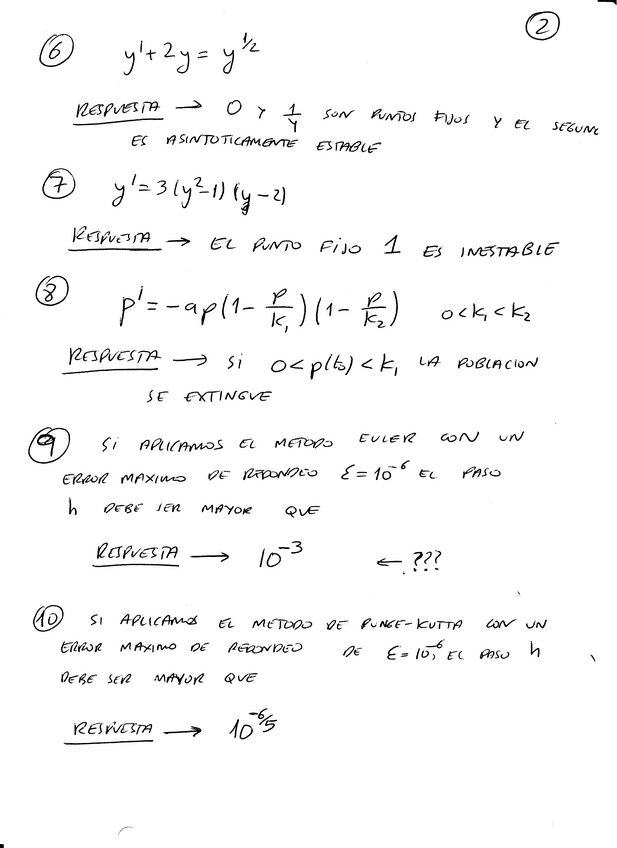 2
6 y' + 2y = y^{1/2}
RESPUESTA → 0 Y 1/4 SON PUNTOS FIJOS Y EL SEGUN
ES ASINTOTICAMENTE ESTABLE
7 y' = 3(y²-1)(y-2)
RESPUESTA → EL PUNTO FIJO 1 ES INESTABLE
8 p' = -ap(1 - p/k₁)(1 - p/k₂) 0<k₁<k₂
RESPUESTA → Si 0<p(t₀)<k₁ LA POBLACION
SE EXTINGUE
9 Si APLICAMOS EL METODO EULER CON UN
ERROR MAXIMO DE REDONDEO ε=10⁻⁶ EL PASO
h DEBE SER MAYOR QUE
RESPUESTA → 10⁻³ ← ???
10 SI APLICAMOS EL METODO DE RUNGE-KUTTA CON UN
ERROR MAXIMO DE REDONDEO DE ε=10⁻⁶, EL PASO h
DEBE SER MAYOR QUE
RESPUESTA → 10^{-6/5}